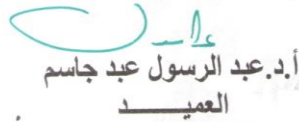 أ.د.عبد الرسول عبد جاسم
العميـــــد